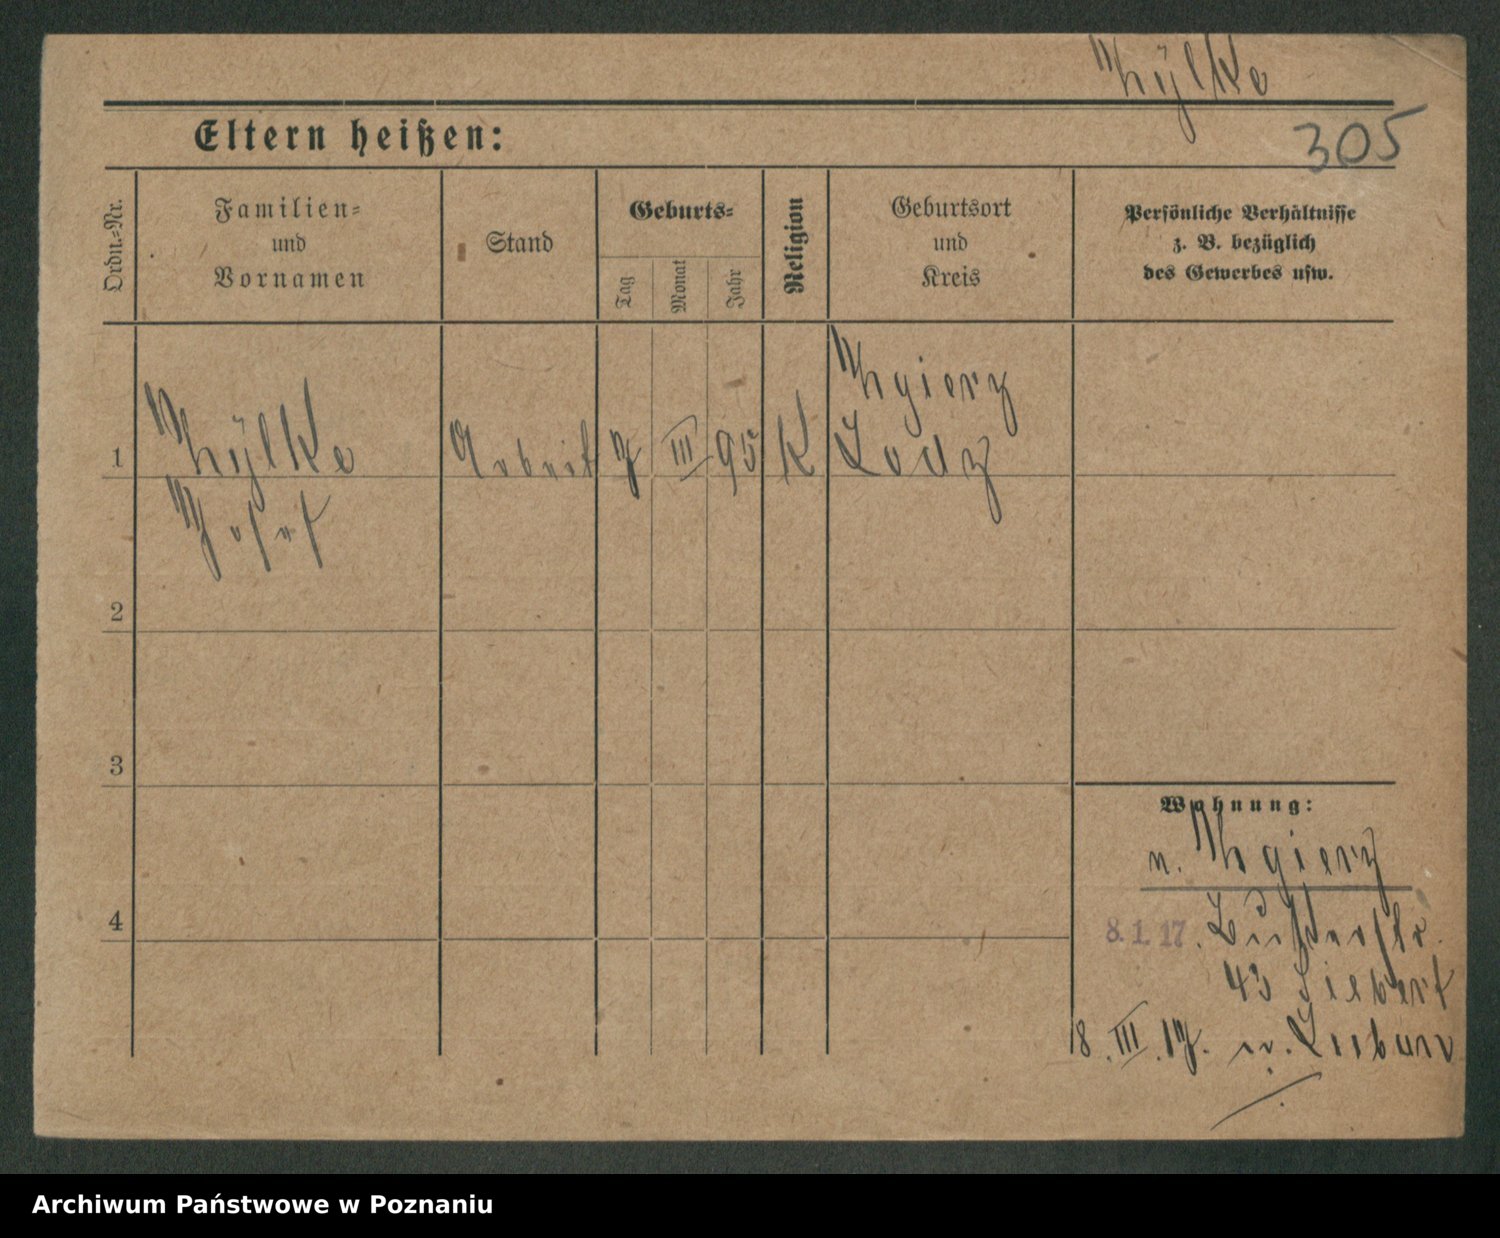 Zÿlke
305
Eltern heißen:
Ordn.-Nr.
Familien-
und
Vornamen
Stand
Geburts-
Tag
Monat
Jahr
Religion
Geburtsort
und
Kreis
Persönliche Verhältnisse
z. B. bezüglich
des Gewerbes usw.
1
Zÿlke
Josef
Arbeit
7
III
95
K
Zgierz
Lodz
2
3
4
Wohnung:
n. Zgierz
8. 1. 17.
43 Siebert
8. III. 17.
Archiwum Państwowe w Poznaniu